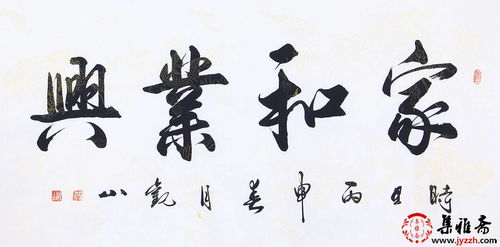 家和業興
時日丙申春月觀山
集雅斋
www.jyzzh.com